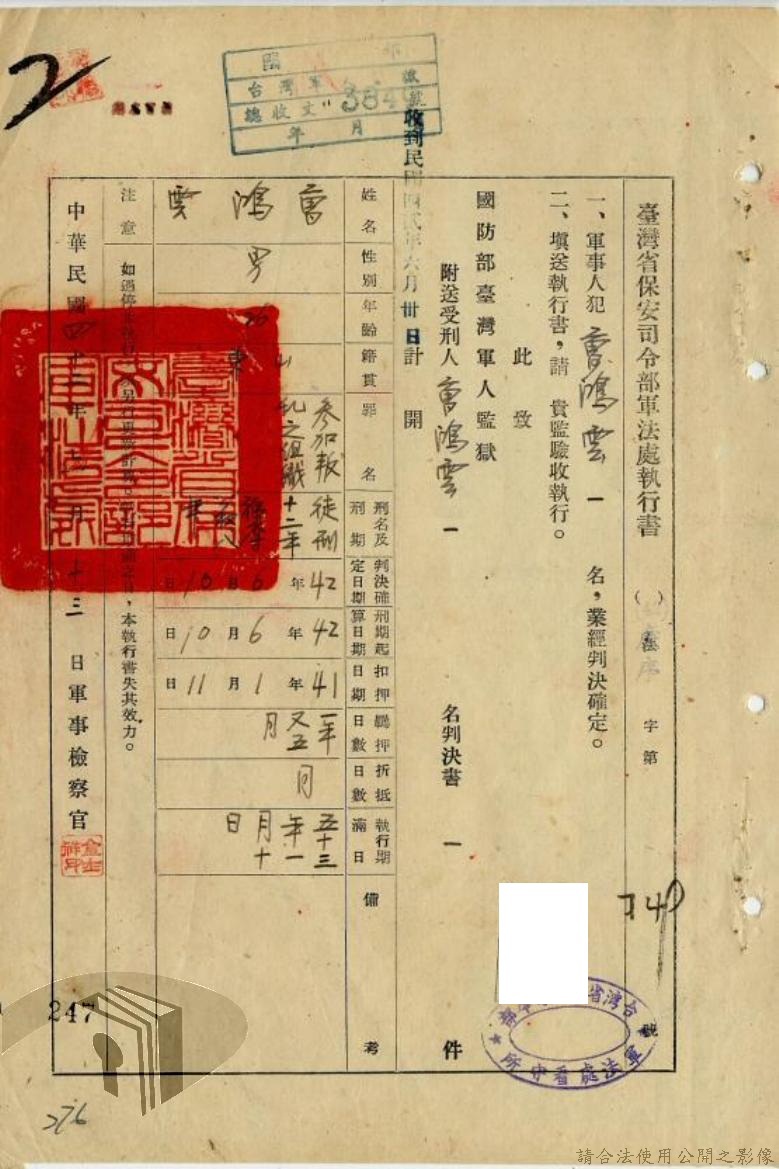 臺灣省保安司令部軍法處執行書
( ) 字第 號
一、軍事人犯 曹鴻雲 一 名,業經判決確定。
二、填送執行書,請 貴監驗收執行。
此致
國防部臺灣軍人監獄
附送受刑人 曹鴻雲 一 名判決書 一 件
計開
收到民國四貳年六月卅日
姓名 曹鴻雲
性別 男
年齡 26
籍貫 山東
罪名 參加叛乱之组織
刑名及刑期 徒刑十二年褫奪公权八年
判決確定日期 42年6月10日
刑期起算日期 42年6月10日
扣押日期 41年1月11日
羈押日數 一年又五月
折抵日數 同
執行期滿日 五十三年一月十日
備考
注意 如過停止執行
,本執行書失其效力。
中華民國四十二年 月十三日軍事檢察官
台灣軍
總收文
年 月
軍法處看守所
2
247
276
請合法使用公開之影像